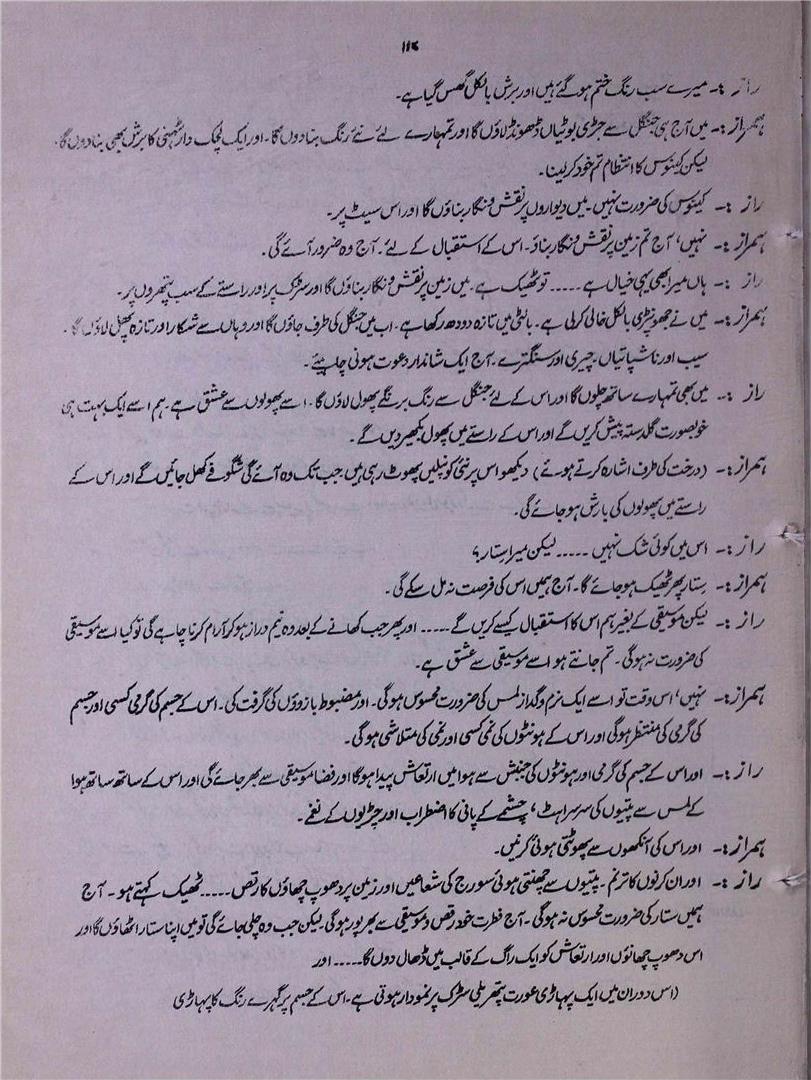 ۱۱۸
راز :- میرے سب رنگ ختم ہو گئے ہیں اور برش بالکل گھس گیا ہے۔
ہمراز :- میں آج ہی جنگل سے جڑی بوٹیاں ڈھونڈ لاؤں گا اور تمہارے لئے نئے رنگ بنا دوں گا۔ اور ایک لچک دار ٹہنی کا برش بھی بنا دوں گا۔
لیکن کینوس کا انتظام تم خود کر لینا۔
راز :- کینوس کی ضرورت نہیں۔ میں دیواروں پر نقش و نگار بناؤں گا اور اس سیٹ پر۔
ہمراز :- نہیں، آج تم زمین پر نقش و نگار بناؤ۔ اس کے استقبال کے لئے۔ آج وہ ضرور آئے گی۔
راز :- ہاں میرا بھی یہی خیال ہے ..... تو ٹھیک ہے۔ میں زمین پر نقش و نگار بناؤں گا اور سڑک پر اور راستے کے سب پتھروں پر۔
ہمراز :- میں نے جھونپڑی بالکل خالی کر لی ہے۔ بالٹی میں تازہ دودھ رکھا ہے۔ اب میں جنگل کی طرف جاؤں گا اور وہاں سے شکار اور تازہ پھل لاؤں گا۔
سیب اور ناشپاتیاں۔ چیری اور سنگترے۔ آج ایک شاندار دعوت ہونی چاہیئے۔
راز :- میں بھی تمہارے ساتھ چلوں گا اور اس کے لئے جنگل سے رنگ برنگے پھول لاؤں گا۔ اسے پھولوں سے عشق ہے۔ ہم اسے ایک بہت ہی
خوبصورت گلدستہ پیش کریں گے اور اس کے راستے میں پھول بکھیر دیں گے۔
ہمراز :- (درخت کی طرف اشارہ کرتے ہوئے) دیکھو اس پر نئی کونپلیں پھوٹ رہی ہیں۔ جب تک وہ آئے گی شگوفے کھل جائیں گے اور اس کے
راستے میں پھولوں کی بارش ہو جائے گی۔
راز :- اس میں کوئی شک نہیں ..... لیکن میرا ستار؟
ہمراز :- ستار پھر ٹھیک ہو جائے گا۔ آج ہمیں اس کی فرصت نہ مل سکے گی۔
راز :- لیکن موسیقی کے بغیر ہم اس کا استقبال کیسے کریں گے ..... اور پھر جب کھانے کے بعد وہ نیم دراز ہو کر آرام کرنا چاہے گی تو کیا اسے موسیقی
کی ضرورت نہ ہوگی۔ تم جانتے ہو اسے موسیقی سے عشق ہے۔
ہمراز :- نہیں، اس وقت تو اسے ایک نرم و گداز لمس کی ضرورت محسوس ہوگی۔ اور مضبوط بازوؤں کی گرفت کی۔ اس کے جسم کی گرمی کسی اور جسم
کی گرمی کی منتظر ہوگی اور اس کے ہونٹوں کی نمی کسی اور نمی کی متلاشی ہوگی۔
راز :- اور اس کے جسم کی گرمی اور ہونٹوں کی جنبش سے ہوا میں ارتعاش پیدا ہوگا اور فضا موسیقی سے بھر جائے گی اور اس کے ساتھ ساتھ ہوا
کے لمس سے پتیوں کی سرسراہٹ، چشمے کے پانی کا اضطراب اور چڑیوں کے نغمے۔
ہمراز :- اور اس کی آنکھوں سے پھوٹتی ہوئی کرنیں۔
راز :- اور ان کرنوں کا ترنم۔ پتیوں سے چھنتی ہوئی سورج کی شعاعیں اور زمین پر دھوپ چھاؤں کا رقص ..... ٹھیک کہتے ہو۔ آج
ہمیں ستار کی ضرورت محسوس نہ ہوگی۔ آج فطرت خود رقص و موسیقی سے بھرپور ہوگی۔ لیکن جب وہ چلی جائے گی تو میں اپنا ستار اٹھاؤں گا اور
اس دھوپ چھاؤں اور ارتعاش کو ایک راگ کے قالب میں ڈھال دوں گا ..... اور
(اس دوران میں ایک پہاڑی عورت پتھریلی سڑک پر نمودار ہوتی ہے۔ اس کے جسم پر گہرے رنگ کا پہاڑی